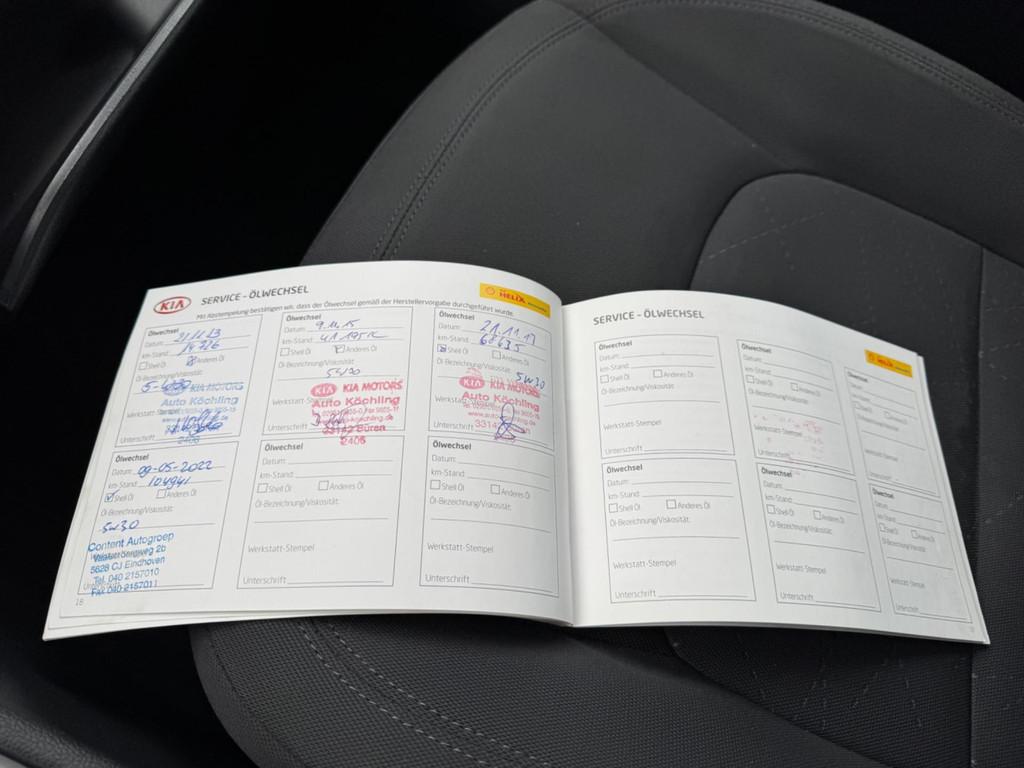 KIA
SERVICE - ÖLWECHSEL
HELIX
Mit Abstempelung bestätigen wir, dass der Ölwechsel gemäß der Herstellervorgabe durchgeführt wurde.
Ölwechsel
Datum:
km-Stand:
Shell Öl Anderes Öl
Öl-Bezeichnung/Viskosität:
KIA MOTORS
Auto Köchling
Unterschrift
2406
Ölwechsel
Datum: 9.11.15
km-Stand:
Shell Öl Anderes Öl
Öl-Bezeichnung/Viskosität:
KIA MOTORS
Auto Köchling
33142 Büren
Unterschrift 2406
Ölwechsel
Datum:
km-Stand: 68635
Shell Öl Anderes Öl
Öl-Bezeichnung/Viskosität:
5W30
KIA MOTORS
Auto Köchling
Unterschrift
Ölwechsel
Datum: 09-05-2022
km-Stand: 104941
Shell Öl Anderes Öl
Öl-Bezeichnung/Viskosität:
5W30
Content Autogroep
5628 CJ Eindhoven
Tel. 040 2157010
Fax 040 2157011
18
Ölwechsel
Datum:
km-Stand:
Shell Öl Anderes Öl
Öl-Bezeichnung/Viskosität:
Werkstatt-Stempel
Unterschrift
Ölwechsel
Datum:
km-Stand:
Shell Öl Anderes Öl
Öl-Bezeichnung/Viskosität:
Werkstatt-Stempel
Unterschrift
SERVICE - ÖLWECHSEL
HELIX
Ölwechsel
Datum:
km-Stand:
Shell Öl Anderes Öl
Öl-Bezeichnung/Viskosität:
Werkstatt-Stempel
Unterschrift
Ölwechsel
Datum:
km-Stand:
Shell Öl Anderes Öl
Öl-Bezeichnung/Viskosität:
Werkstatt-Stempel
Unterschrift
Ölwechsel
Datum:
km-Stand:
Shell Öl Anderes Öl
Öl-Bezeichnung/Viskosität:
Werkstatt-Stempel
Unterschrift
Ölwechsel
Datum:
km-Stand:
Shell Öl Anderes Öl
Öl-Bezeichnung/Viskosität:
Werkstatt-Stempel
Unterschrift
Ölwechsel
Datum:
km-Stand:
Shell Öl Anderes Öl
Öl-Bezeichnung/Viskosität:
Werkstatt-Stempel
Unterschrift
Ölwechsel
Datum:
km-Stand:
Shell Öl Anderes Öl
Öl-Bezeichnung/Viskosität:
Werkstatt-Stempel
Unterschrift